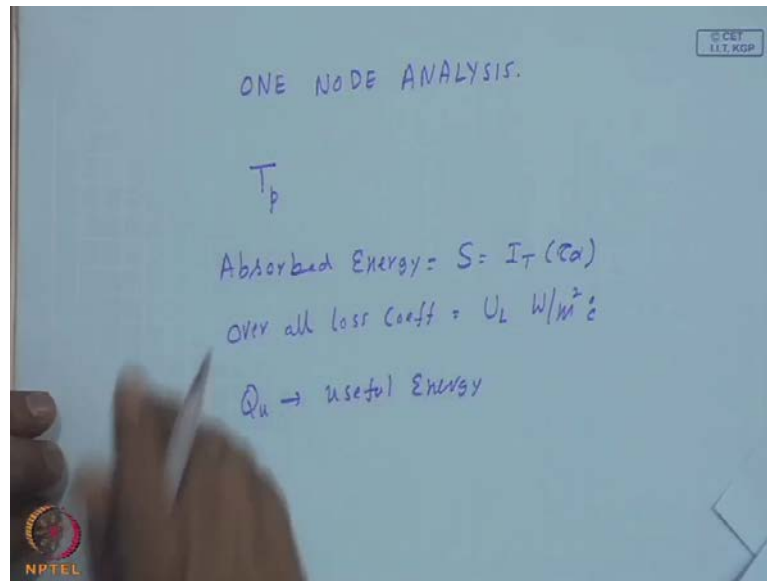 © CET
I.I.T. KGP
ONE NODE ANALYSIS.
Tp
Absorbed Energy = S = I_T (τα)
Over all loss Coeff = U_L W/m² °c
Qu → useful Energy
NPTEL